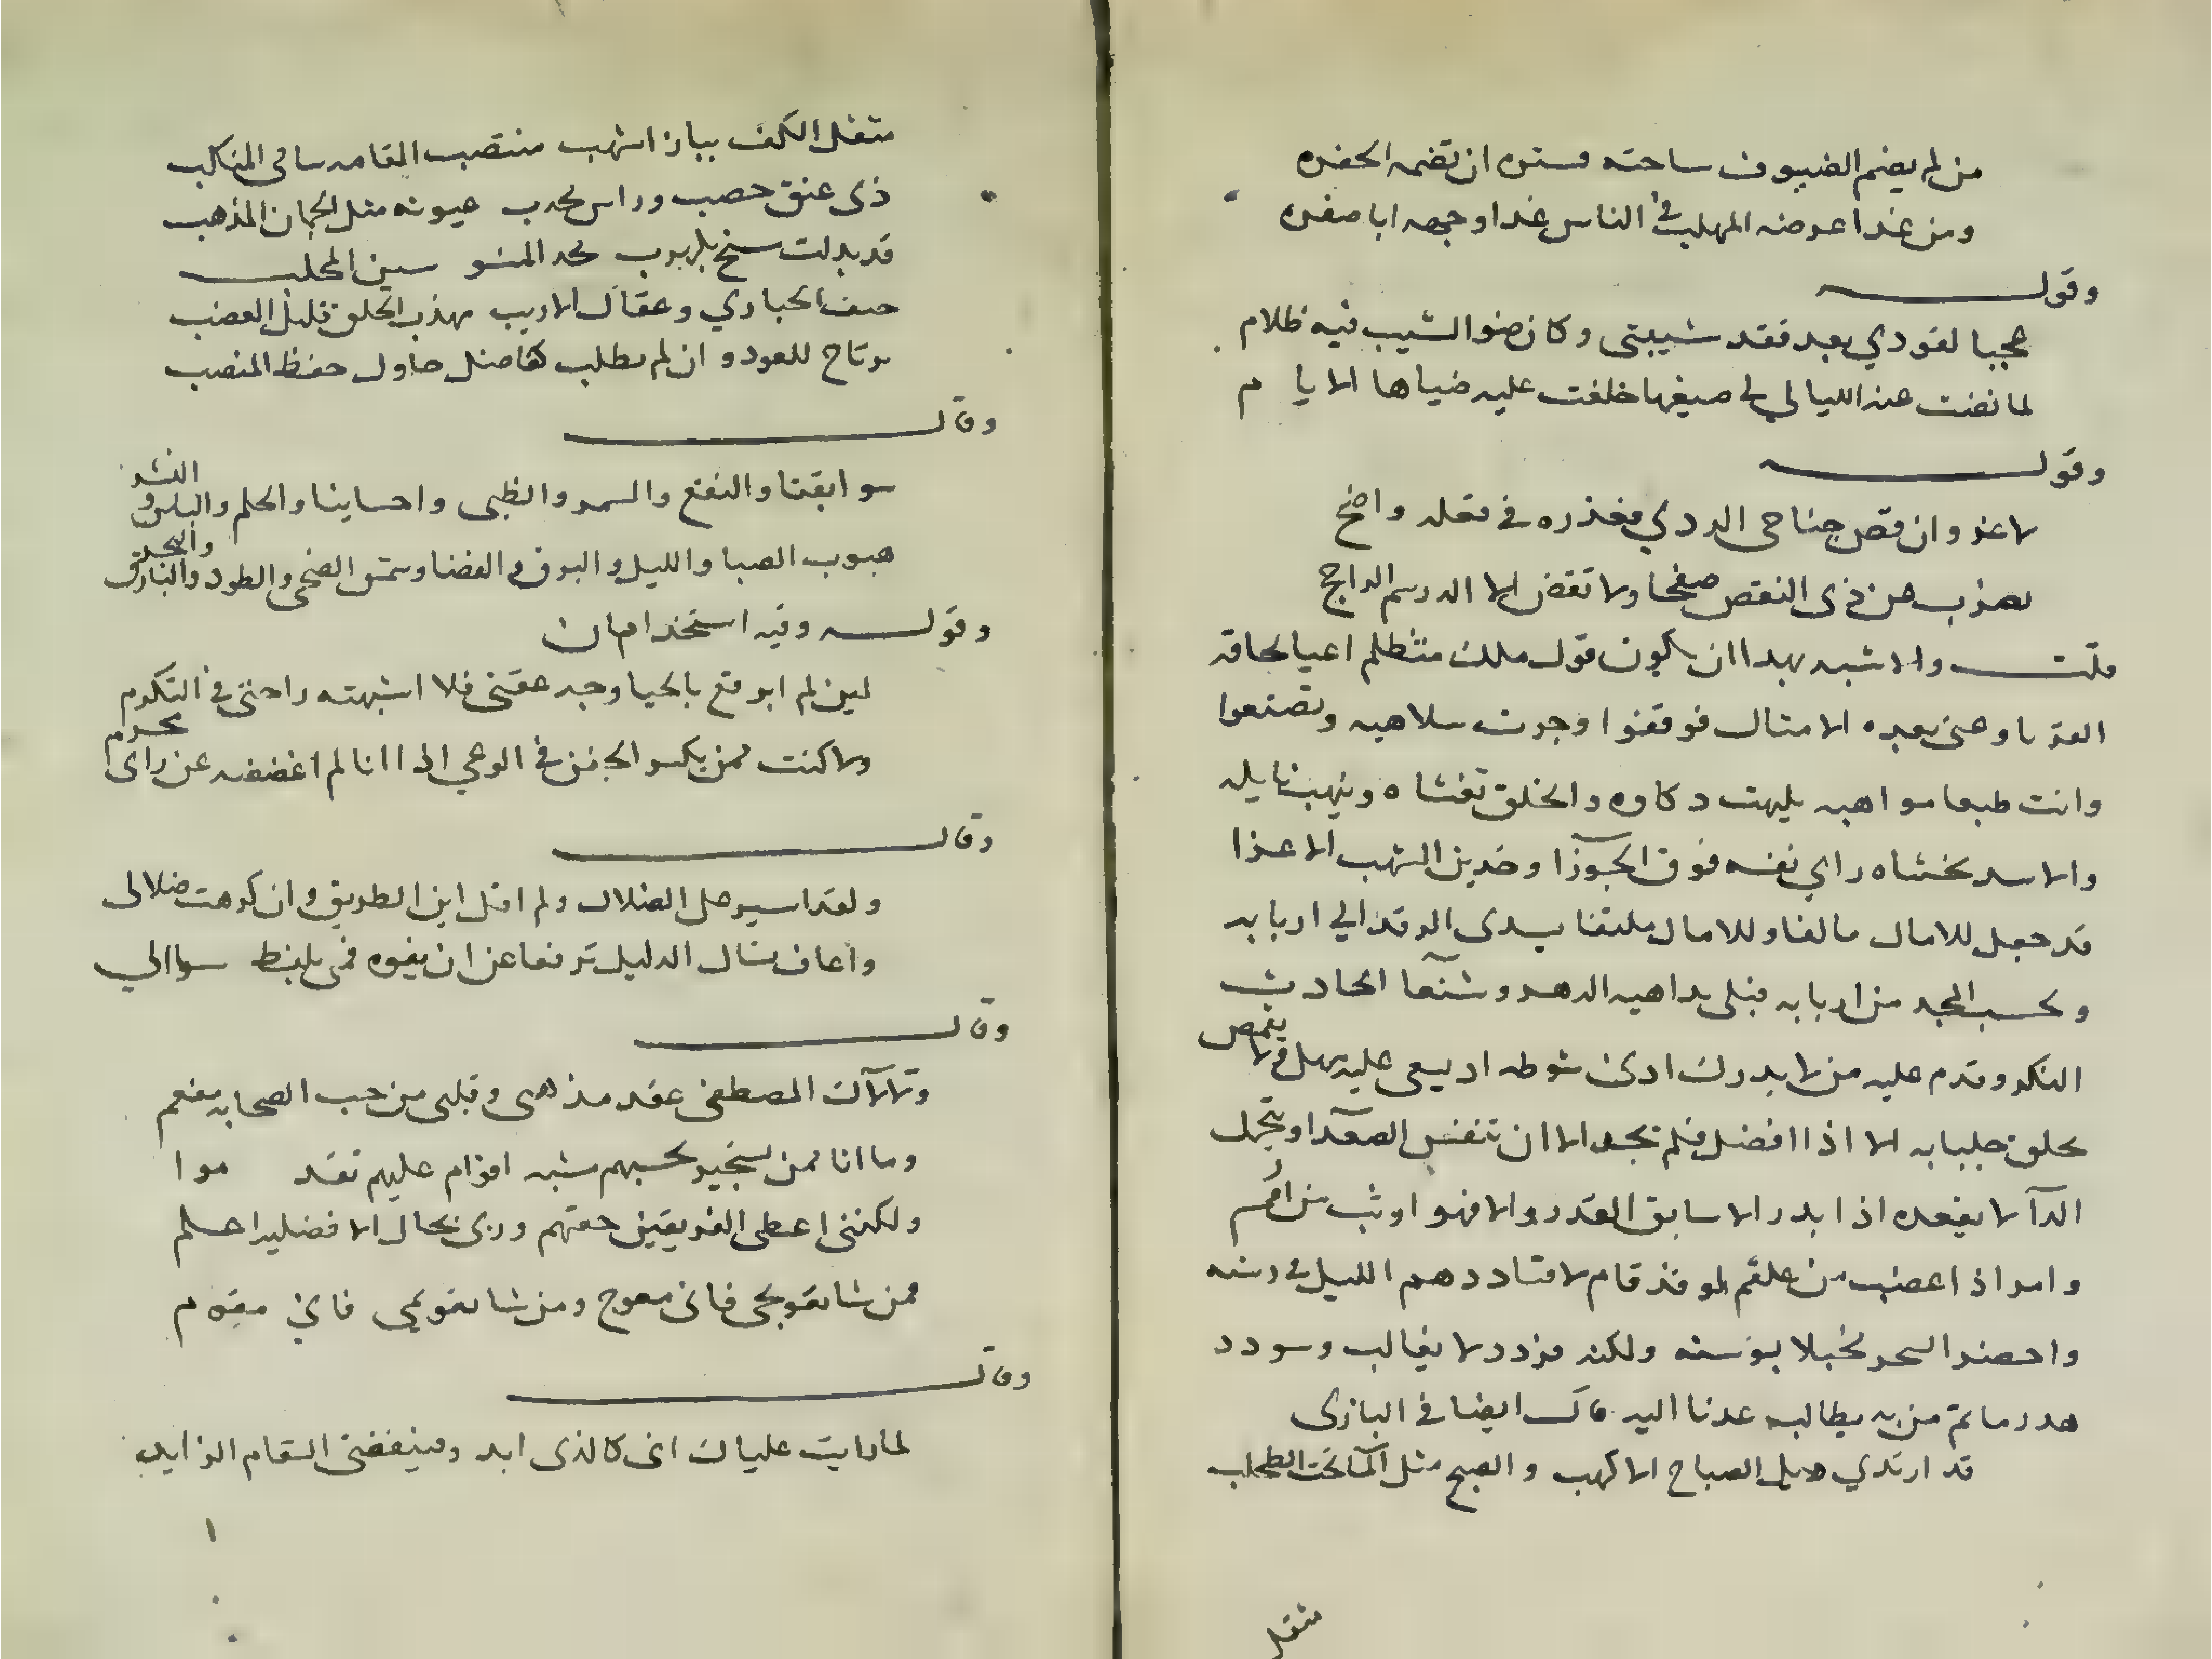 من لم يضم الضيوف ساحته فستره ان تضمه الحفره
ومن غدا عرضه المهلب في الناس غدا وجهه ابا صفره
وقوله
عجبا لفودي بعد فقد شيبتى وكان ضوا الشيب فيه ظلام
لما نضت عند الليالي لي صبغها خلفت عليه ضياها الايام
وقوله
لا غزو ان قص جناحى الردي فعذره في فعله واضح
يضرب عن ذى النقص صفحا ولا تقض الا الدرسم الراجح
قلت والاشبه بهدا ان يكون قول ملك متظلم اعيا لحاقه
وعنى بعده الامتال فوقفوا وجرت سلاهبه وتصنعوا
وانت طبعا مواهبه يلهت دكاوه والخلق تغشاه وينهب نايله
والاسد تخشاه راي نفسه فوق الجوزا وخدين الشهب الاعزا
قد جعل للامال مالفا وللامال ملتقا يسدى الرفد الي اربابه
ويحسب المجد من اربابه فبلى بداهيه الدهر وشنعا الحادث
النكر وقدم عليه من لا يدرك ادنى شوطه اد يسعى عليه مهل ولا يقمص
بخلق جلبابه الا اذا افضل فلم يجد الا ان تنفس الصعدا
الدآ لا يقعده اذا بدر الا سابق القدر والا فهو اوثب من
وامر اذ اعضب من علقم لو قد قام لاقتاد دهم الليل في رسنه
واحضر السحر مخبلا بوسنه ولكنه فرد لا يغالب وسودد
هدر ما تم من به يطالبه عدنا اليه قال ايضا في البازى
قد ارتدي ذيل الصباح الاكهب والصبح مثل المآ تحت الطحلب
مثقل
مثقل الكف بباز اشهب منتصب القامه سامي المنكب
ذى عنق خصب وراس محدب عيونه مثل الجمان المذهب
قد بدلت
حتف الحباري وعقال الارنب مهذب الخلق قليل الغضب
يرتاح للعود وان لم يطلب كفاضل حاول حفظ المنصب
وقال
سوابقنا والنقع والسمر والظبى واحسابنا والحلم والباس والبر
هبوب الصبا والليل والبرق والقضا وشمس الضحى والطود والنار والبحر
وقوله وفيه استخدامان
لين لم ابرقع بالحيا وجه عفتى فلا اشبهته راحتي في التكرم
ولا كنت ممن يكسر الجفن في الوغي اذا انا لم اغضضه عن راى محرم
وقال
ولقد اسير على الضلال ولم اقل اين الطريق وان كرهت ضلالى
واعاف تسال الدليل ترفعا عن ان يفوه فمى بلفظ سوالي
وقال
ولا آل المصطفى عقد مذهبى وقلبى من حب الصحابه مفعم
وما انا ممن يستجير بحبهم مسبه اقوام عليهم تقدموا
ولكننى اعطى الفريقين حقهم وربى بحال الافضلين اعلم
فمن شا تعويجى فانى معوج ومن شا تقويمى فاني مقوم
وقال
لما رايت علياك انى كالذى ابد وفينقضنى السقام الزايد